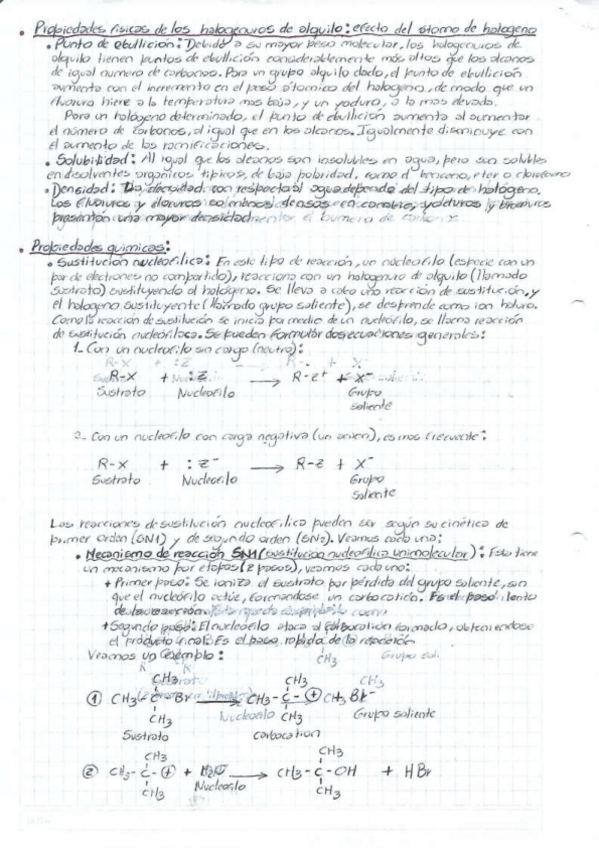 • Propiedades físicas de los halogenuros de alquilo: efecto del átomo de halógeno
• Punto de ebullición: Debido a su mayor peso molecular, los halogenuros de
alquilo tienen puntos de ebullición considerablemente más altos que los alcanos
de igual numero de carbonos. Para un grupo alquilo dado, el punto de ebullición
aumenta con el incremento en el peso atomico del halógeno, de modo que un
fluoruro hierve a la temperatura mas baja, y un yoduro, a la mas elevada.
Para un halógeno determinado, el punto de ebullición aumenta al aumentar
el número de carbonos, al igual que en los alcanos. Igualmente disminuye con
el aumento de las ramificaciones.
• Solubilidad: Al igual que los alcanos son insolubles en agua, pero son solubles
en disolventes orgánicos típicos, de baja polaridad, como el benceno, eter o cloroformo
• Densidad: La densidad con respecto al agua depende del tipo de halógeno.
Los fluoruros y cloruros son menos densos en cambio, yoduros y bromuros
presentan una mayor densidad
• Propiedades quimicas:
• Sustitución nucleofilica: En este tipo de reacción, un nucleofilo (especie con un
par de electrones no compartido), reacciona con un halogenuro de alquilo (llamado
sustrato) sustituyendo al halógeno. Se lleva a cabo una reacción de sustitución, y
el halogeno sustituyente (llamado grupo saliente), se desprende como ion haluro.
Como la reacción de sustitución se inicia por medio de un nucleófilo, se llama reacción
de sustitución nucleofílica. Se pueden formular dos ecuaciones generales:
1- Con un nucleofilo sin carga (neutro):
R-X + :Z → R-Z⁺ + X⁻
Sustrato Nucleofilo Grupo
saliente
2- Con un nucleofilo con carga negativa (un anion), es mas frecuente:
R-X + :Z⁻ → R-Z + X⁻
Sustrato Nucleofilo Grupo
saliente
Las reacciones de sustitución nucleofílica pueden ser según su cinética de
primer orden (SN1) y de segundo orden (SN2). Veamos cada una:
• Mecanismo de reacción SN1 (sustitución nucleofilica unimolecular): Esta tiene
un mecanismo por etapas (2 pasos), veamos cada uno:
+ Primer paso: Se ioniza el sustrato por pérdida del grupo saliente, sin
que el nucleófilo actúe, formandose un carbocatión. Es el paso lento
de la reacción.
+ Segundo paso: El nucleófilo ataca al carbocatión formado, obteniendose
el producto final. Es el paso rapido de la reacción
Veamos un ejemplo:
CH3 CH3
① CH3-C-Br → CH3-C-(+) + Br⁻
CH3 CH3 Grupo saliente
Sustrato carbocation
CH3 CH3
② CH3-C-(+) + H2O → CH3-C-OH + HBr
CH3 Nucleofilo CH3